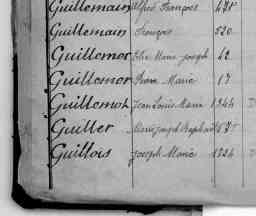 Guillemain Alfred François 478
Guillemain François 520
Guillemot Marie Joseph 42
Guillemot Pierre Marie 17
Guillemot Jean Louis Marie 1344
Guiller Marie Joseph Raphaël
Guillois Joseph Marie 1324